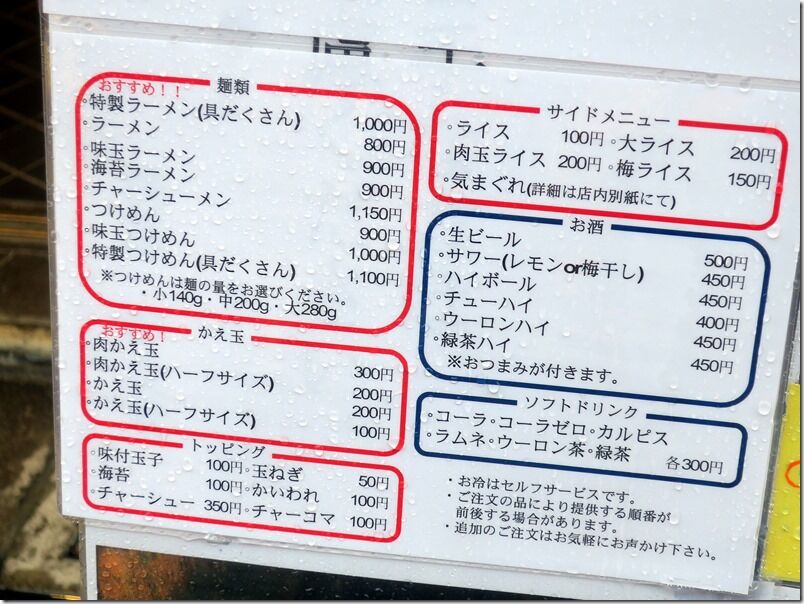 麺類
おすすめ！！
・特製ラーメン(具だくさん) 1,000円
・ラーメン 800円
・味玉ラーメン 900円
・海苔ラーメン 900円
・チャーシューメン 1,150円
・つけめん 900円
・味玉つけめん 1,000円
・特製つけめん(具だくさん) 1,100円
※つけめんは麺の量をお選びください。
・小140g・中200g・大280g
かえ玉
おすすめ！
・肉かえ玉 300円
・肉かえ玉(ハーフサイズ) 200円
・かえ玉 200円
・かえ玉(ハーフサイズ) 100円
トッピング
・味付玉子 100円・玉ねぎ 50円
・海苔 100円・かいわれ 100円
・チャーシュー 350円・チャーコマ 100円
サイドメニュー
・ライス 100円・大ライス 200円
・肉玉ライス 200円・梅ライス 150円
・気まぐれ(詳細は店内別紙にて)
お酒
・生ビール 500円
・サワー(レモンor梅干し) 450円
・ハイボール 450円
・チューハイ 400円
・ウーロンハイ 450円
・緑茶ハイ 450円
※おつまみが付きます。
ソフトドリンク
・コーラ・コーラゼロ・カルピス
・ラムネ・ウーロン茶・緑茶 各300円
・お冷はセルフサービスです。
・ご注文の品により提供する順番が
前後する場合があります。
・追加のご注文はお気軽にお声かけ下さい。